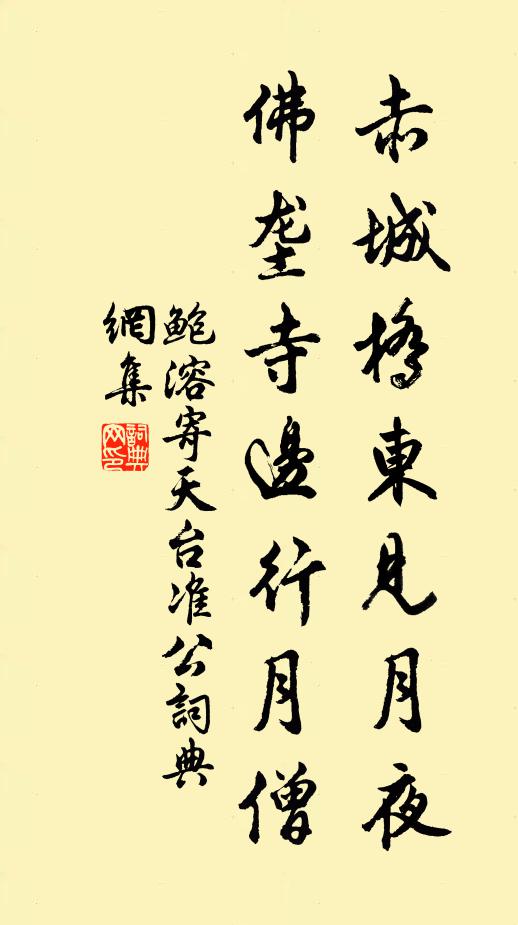 赤城橋東見月夜
佛垄寺邊行月僧
鲍溶寄天台准公詞典
網集
詞典網印